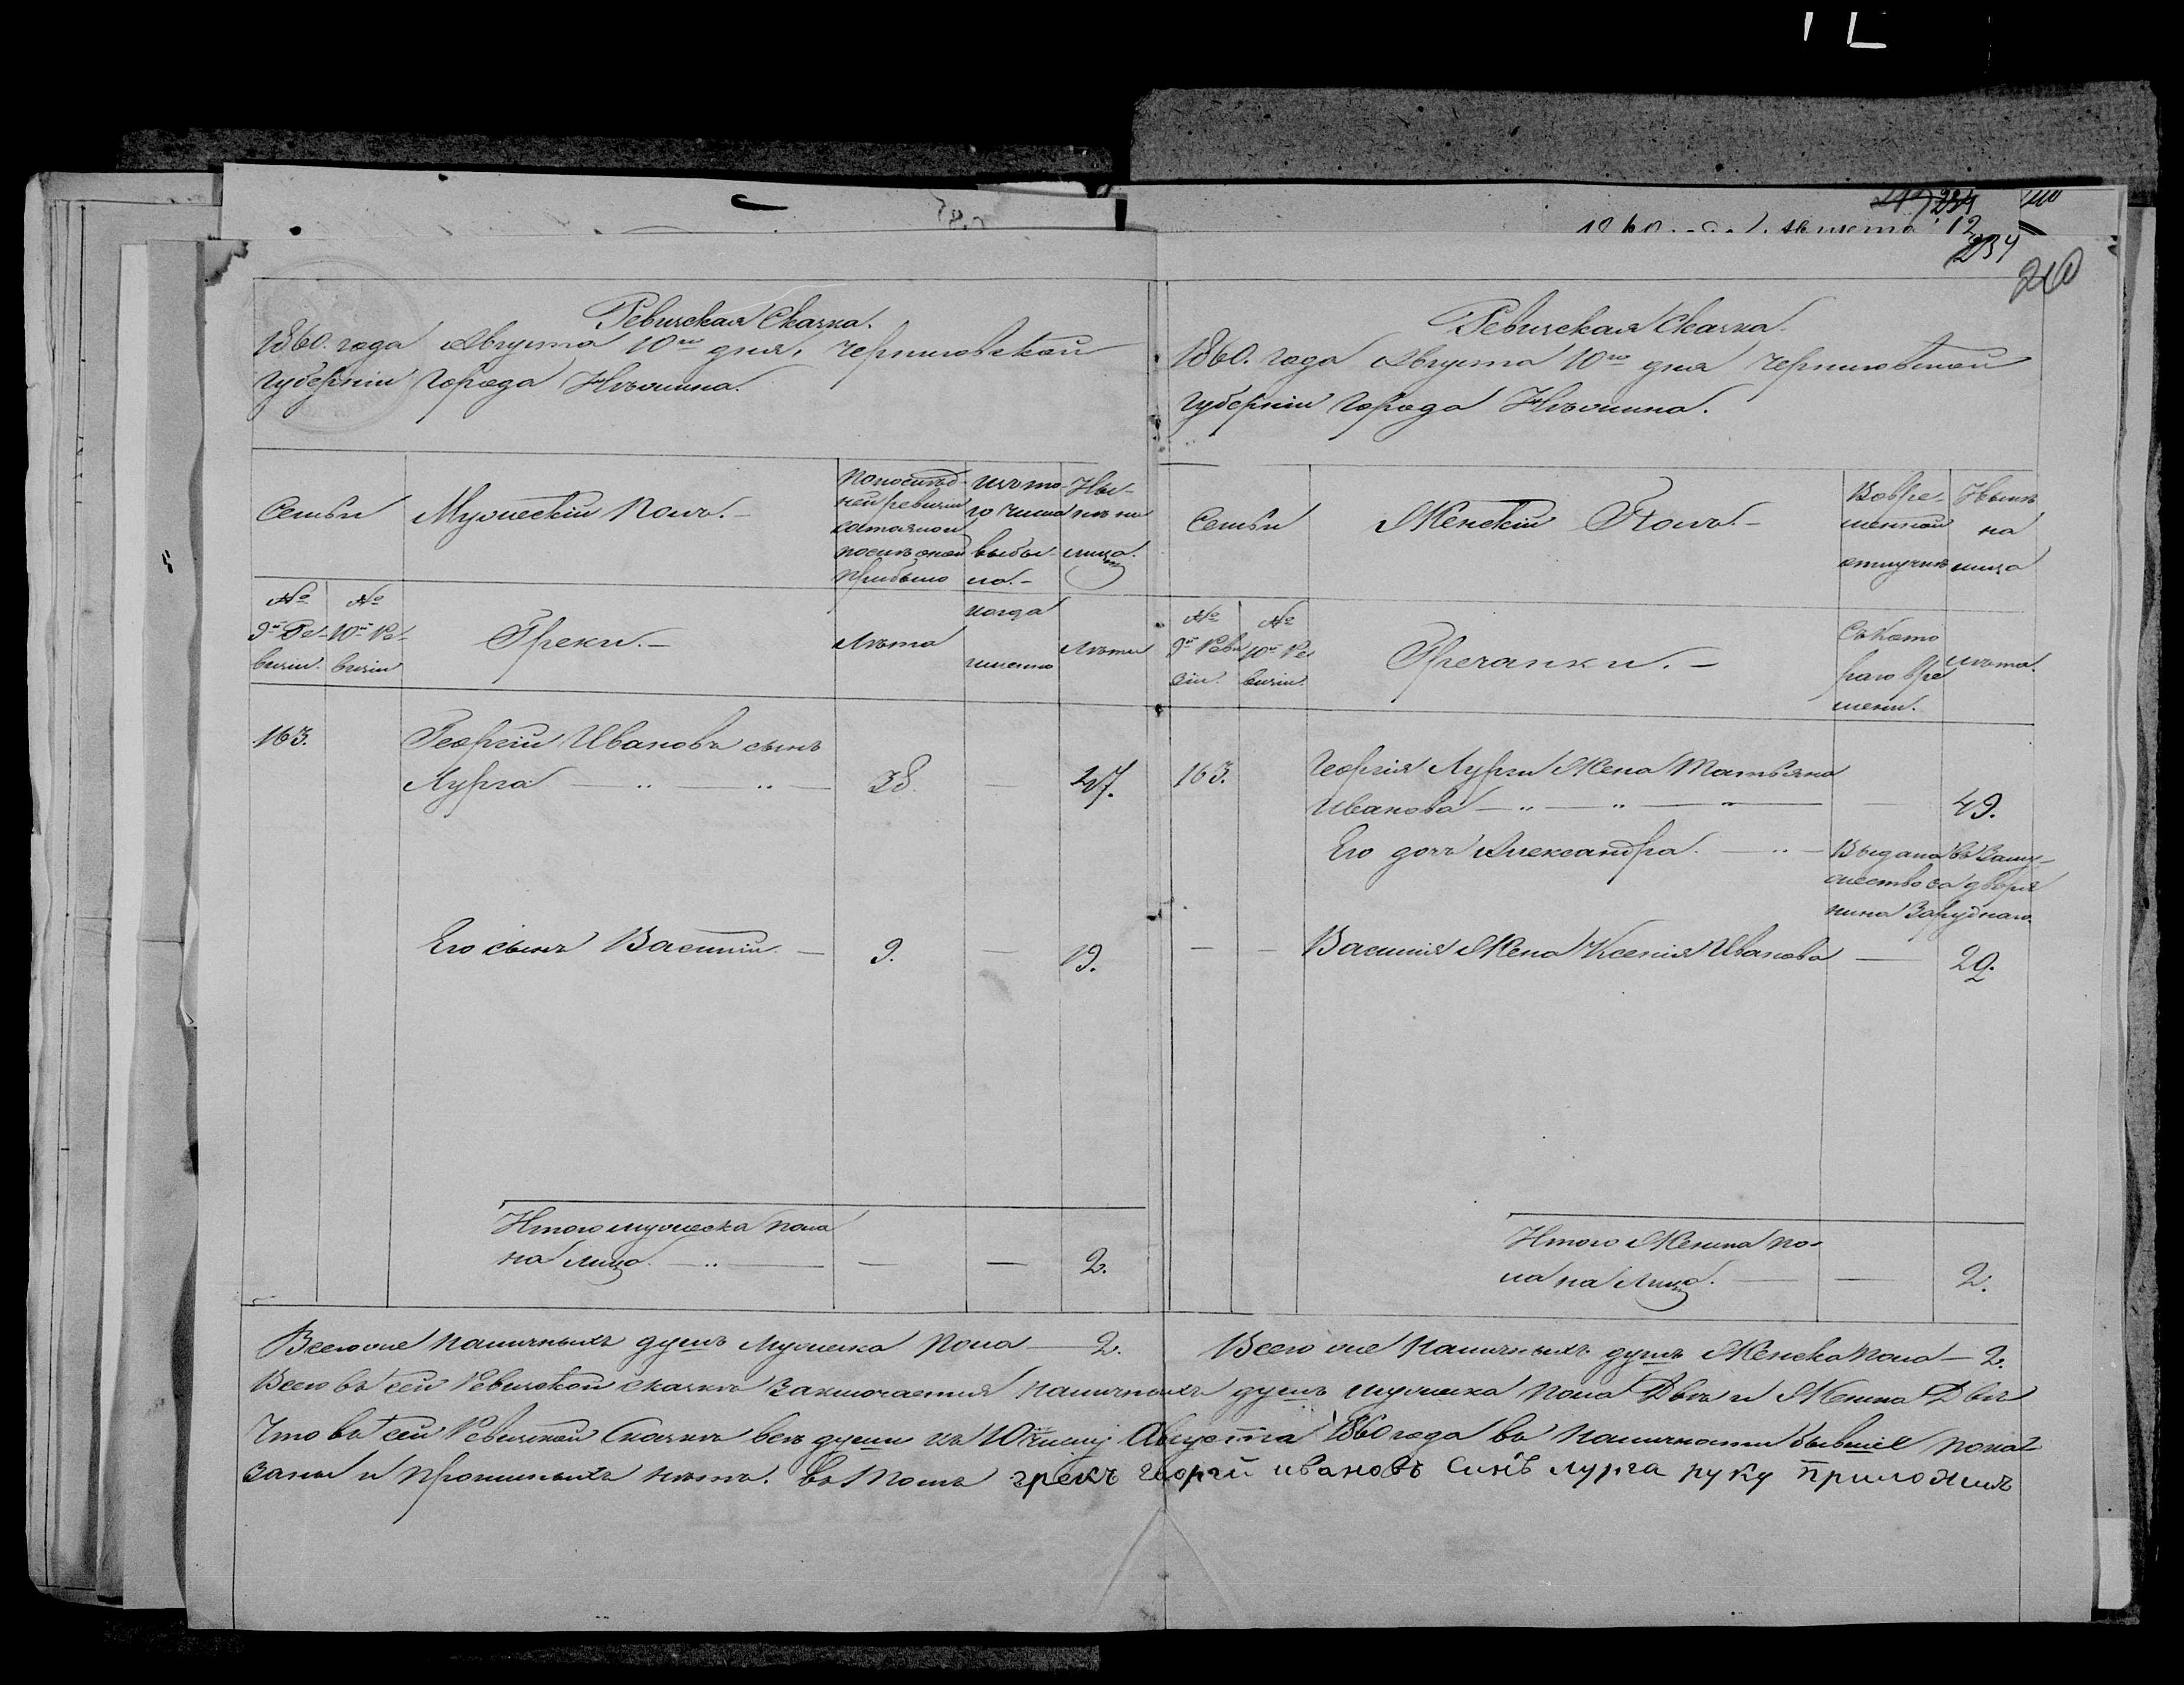 234
1860 года Августа 12
234
210
Ревизская Сказка.
1860. года Августа 10го дня, Черниговской
губерніи города Нѣжина.
Семьи
Мужескій Полъ.
По послѣд-
ней ревизіи
состояло и
послѣ оной
прибыло
Изъ то-
го числа
выбы-
ло.
Ны-
нѣ на
лицо.
№ 9й Ре-
визіи.
№ 10й Ре-
визіи
Греки.
Лѣта
когда
именно
Лѣта
163.
Георгій Ивановъ сынъ
Лурга 38. — 47.
Его сынъ Василій — 9. — 19.
Итого мужеска пола
на лицо — — — 2.
Всего же наличныхъ душъ мужеска пола — 2.
Ревизская Сказка.
1860. года Августа 10го дня Черниговской
губерніи города Нѣжина.
Семьи
Женскій Полъ.
Во вре-
менной
отлучкѣ
Нынѣ
на
лицо
№ 9й Реви
зіи.
№ 10й Ре
визіи.
Гречанки.
Съ кото
раго вре
мени.
Лѣта.
163.
Георгія Лурги Жена Татьяна
Иванова — 49.
Его дочь Александра. — Выдана въ Заму-
жество за дворя
нина Заруднаго
— — Василія Жена Ксенія Иванова — 29.
Итого Женска по-
ла на Лицо. — — 2.
Всего же Наличныхъ душъ Женска пола — 2.
Всего въ сей Ревизской сказкѣ Заключается наличныхъ душъ мужеска пола Двѣ и Женска Двѣ
Что въ сей Ревизской Сказкѣ всѣ души къ 10му числу Августа 1860 года въ наличности бывшіе пока-
заны и прописныхъ нѣтъ. въ томъ грекъ георгій ивановъ Синъ лурга руку приложилъ